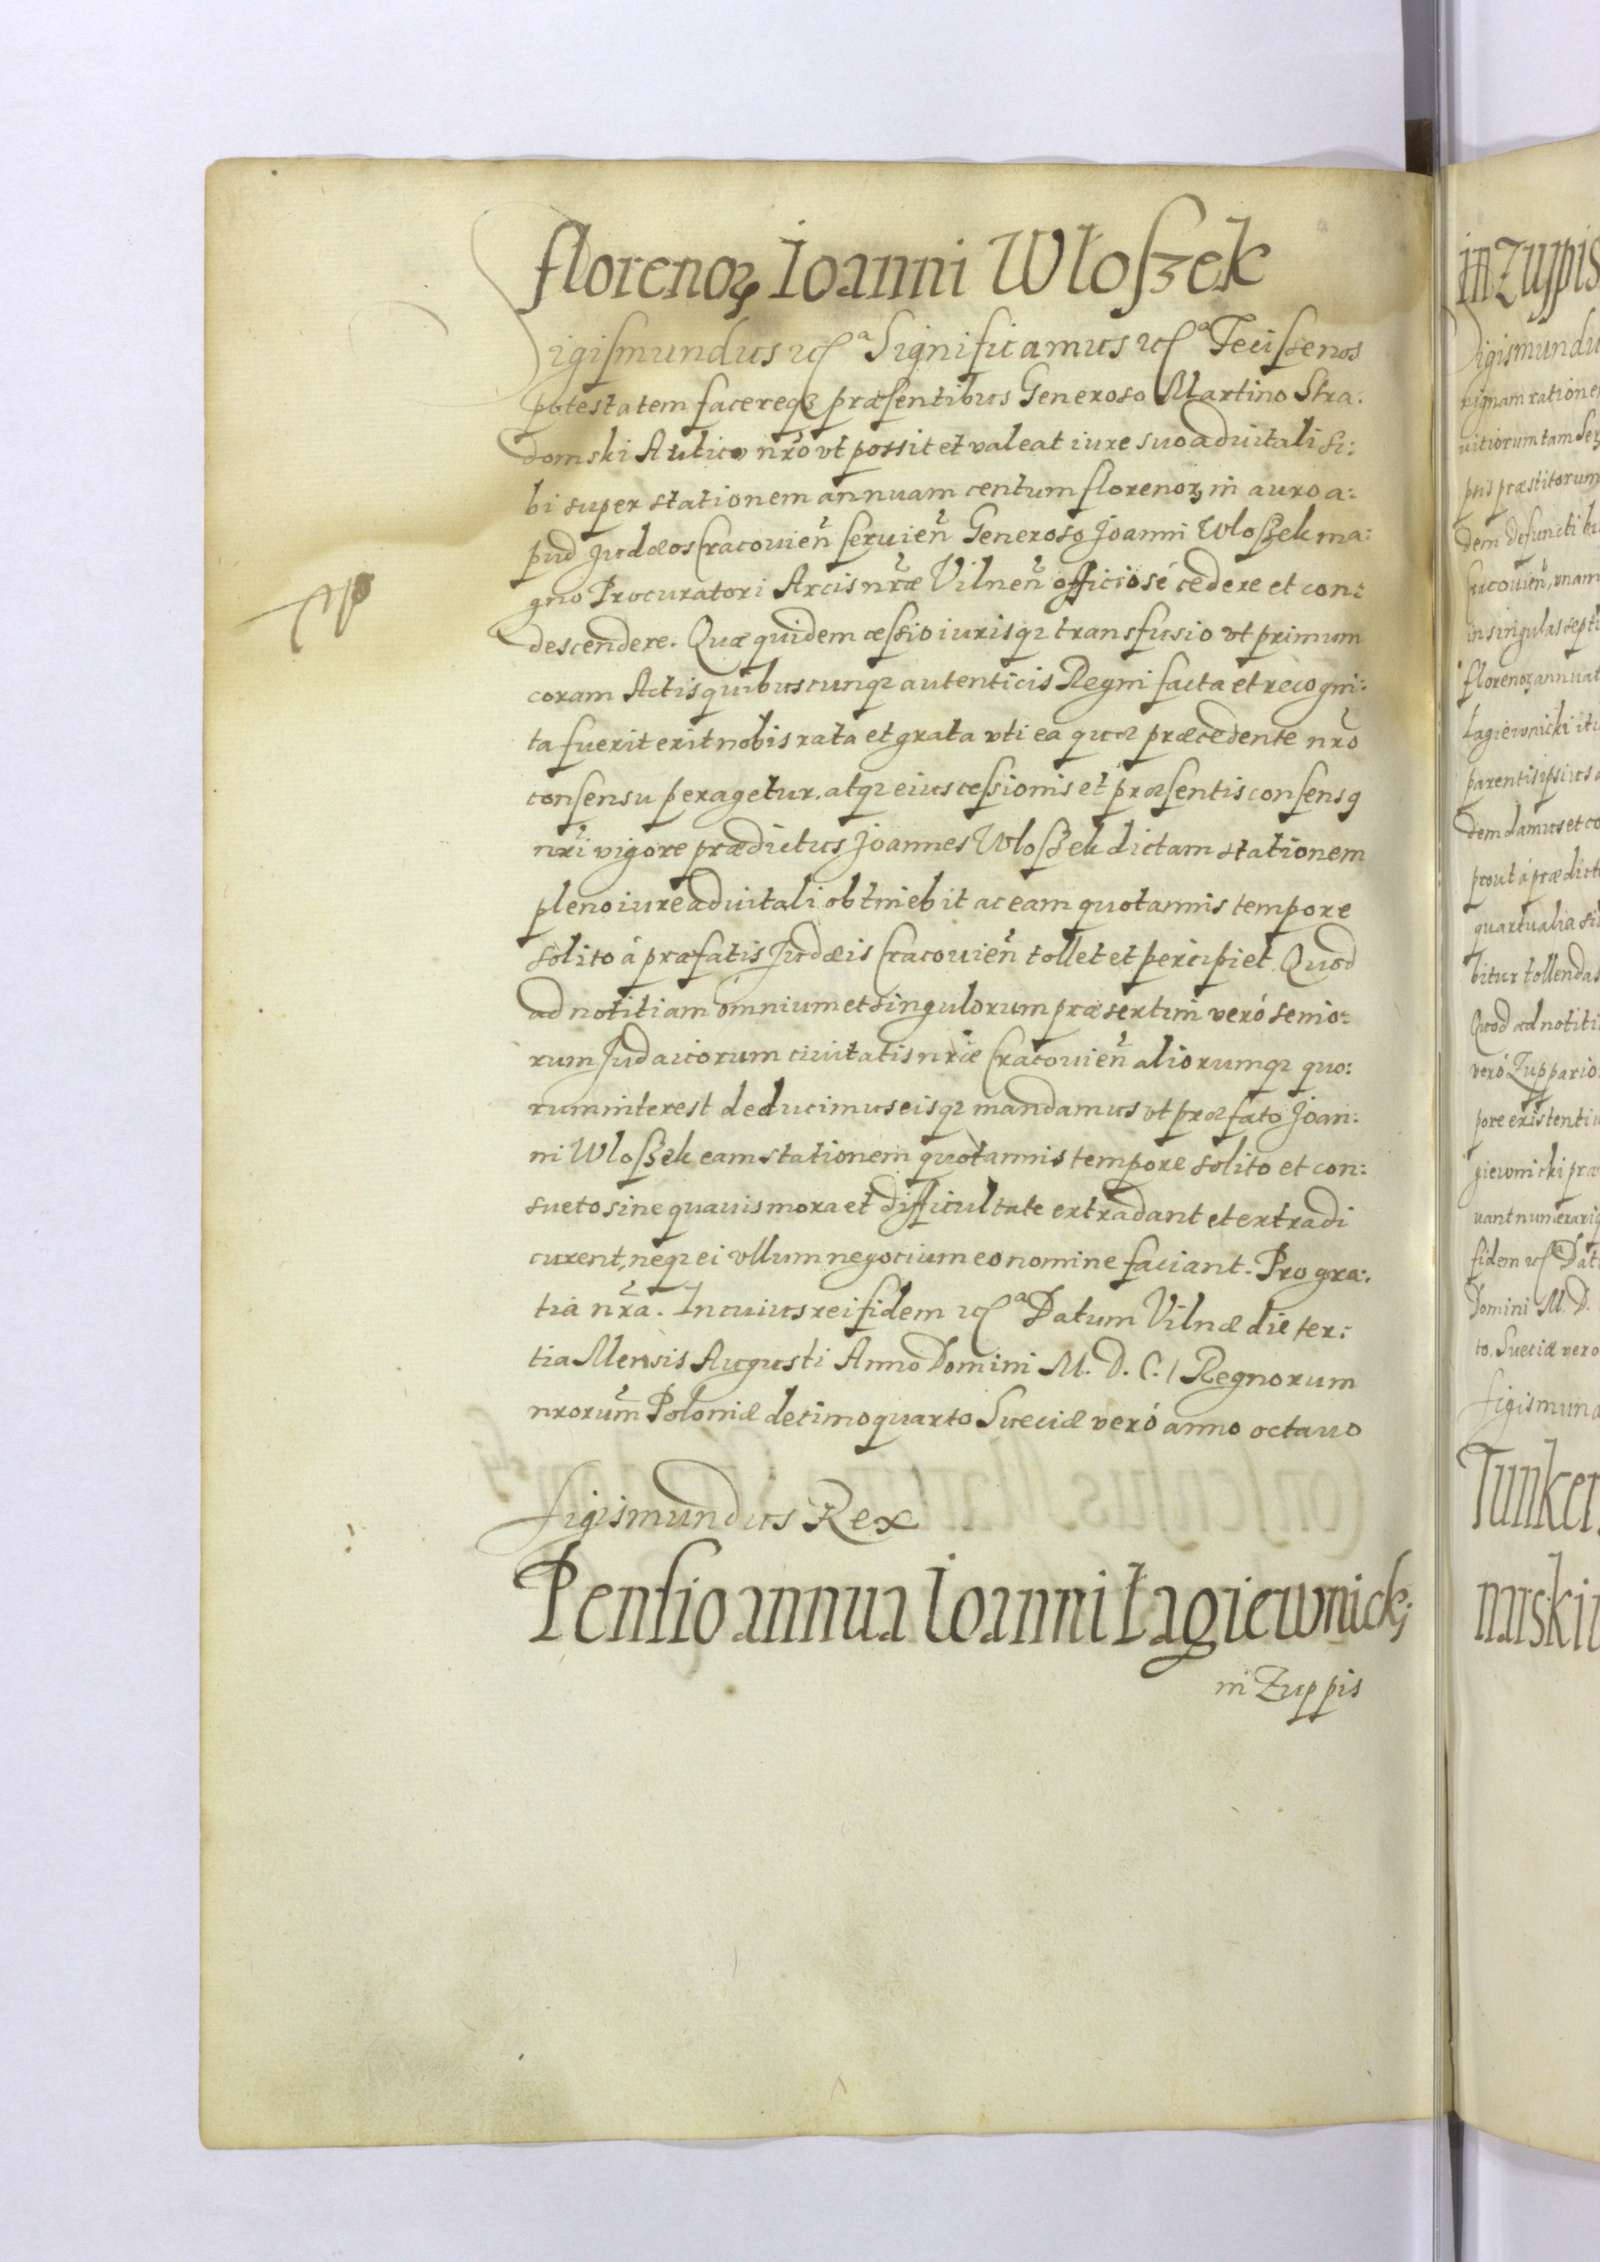 florenoꝝ Ioanni Włoſzek
Sigiſmundus ꝛcᵃ Significamus ꝛcᵃ Feciſse nos
potestatem facereqꝫ præſentibus Generoso Martino Stra:
domski Aulico nr̃o vt possit et valeat iure suo aduitali si:
bi super stationem annuam centum florenoꝝ in auro a:
pud Judæos Cracouien̄ seruien̄ Generoso Joanni Wloſzek ma:
gno Procuratori Arcis nr̃æ Vilnen̄ officiosé cedere et con:
descendere. Quæ quidem ceſsio iurisqꝫ transfusio vt primum
coram Actis quibuscunqꝫ autenticis Regni facta et recogni:
ta fuerit erit nobis rata et grata vti ea quæ præcedente nr̃o
conſensu peragetur. atqꝫ eius ceſsionis et præſentis conſensꝰ
nr̃i vigore prædictus Joannes Wloſzek dictam stationem
pleno iure aduitali obtinebit ac eam quotannis tempore
solito á præfatis Judæis Cracouien̄ tollet et percipiet. Quod
ad notitiam omnium et singulorum præsertim veró senio:
rum Judaicorum ciuitatis nr̃æ Cracouien̄ aliorumqꝫ quo:
rum interest deducimus eisqꝫ mandamus vt præfato Joan:
ni Wloſzek eam stationem quotannis tempore solito et con:
sueto sine quauis mora et difficultate extradant et extradi
curent, neqꝫ ei vllum negocium eo nomine faciant. Pro gra:
tia nr̃a. In cuius rei fidem ꝛcᵃ Datum Vilnæ die ter:
tia Mensis Augusti Anno Domini M. D. C. I Regnorum
nrorum̃ Poloniæ decimoquarto Sueciæ veró anno octauo
Sigismundus Rex
Pensio annua Ioanni Łagiewnicki
in Zuppis
in Zuppis
Sigismundu
florenoꝝ annuat
Lagiewnicki
dem damus et co
prout á prædict
quartualia
bitur tollendas
Quod ad notiti
veró Zuppario
pore existenti
fidem ꝛcᵃ Dat
Domini M. D.
to. Sueciæ vero
Sigismund